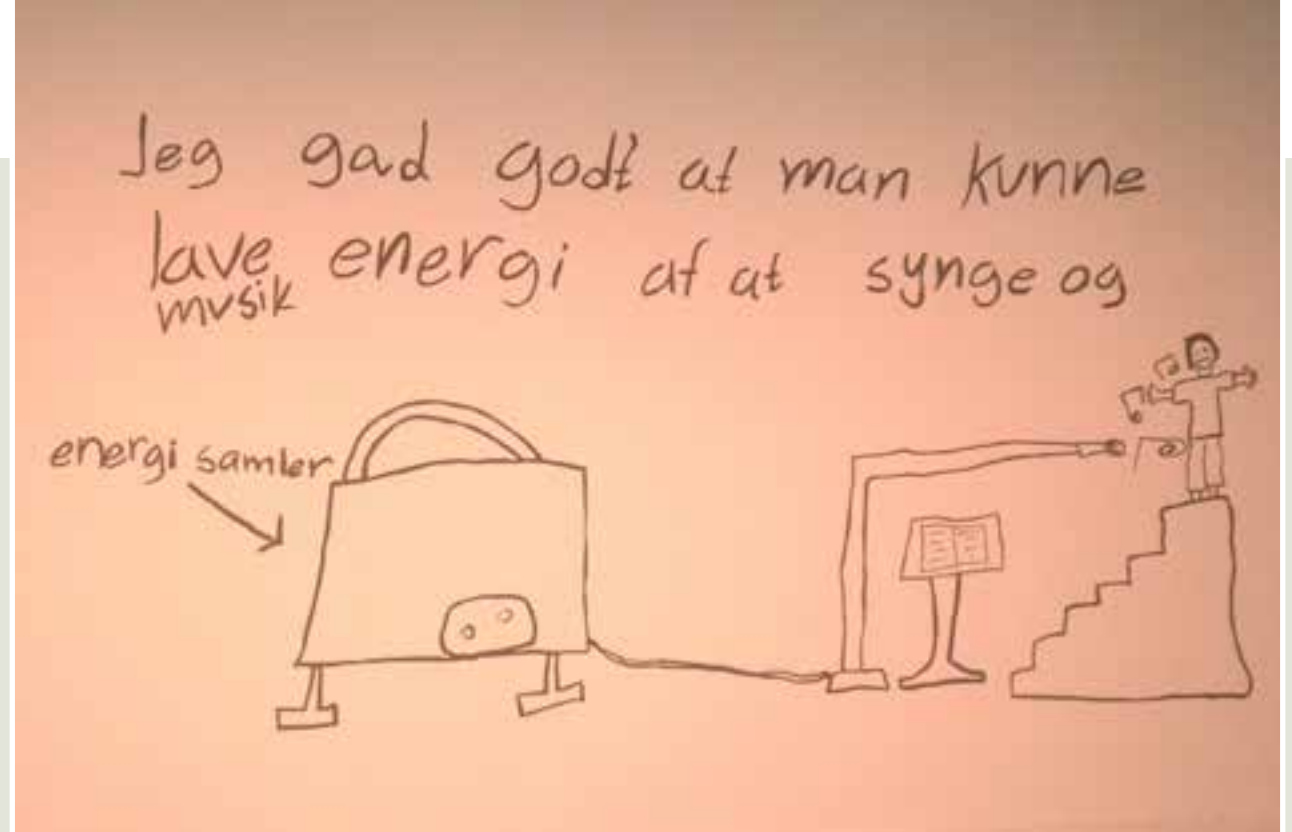 Jeg gad godt at man kunne
lave energi af at synge og
musik
energi samler